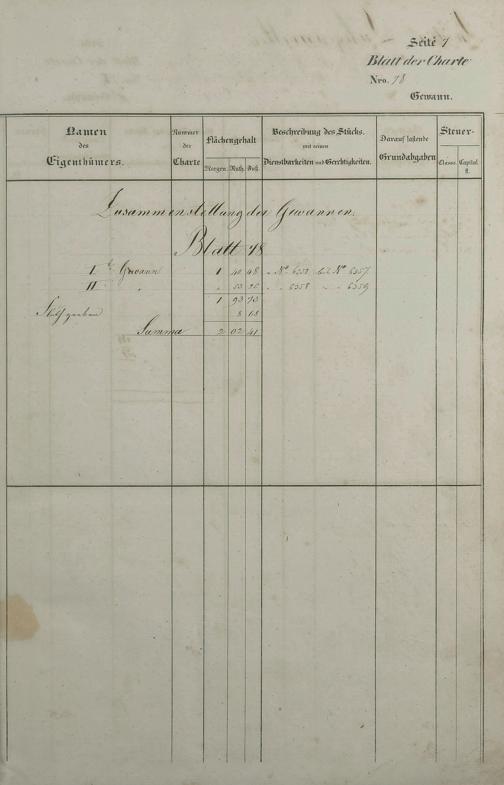 Seite 1
Blatt der Charte
Nro. 78
Gewann.
Namen des Eigenthümers.
Nummer der Charte
Flächengehalt
Morgen. Ruth. Fuß.
Beschreibung des Stücks.
mit seinen
Dienstbarkeiten und Gerechtigkeiten.
Darauf haftende Grundabgaben
Steuer-
Classe. Capital fl.
Zusammenstellung der Gewannen.
Blatt 78
I te Gewann 1 40 48 No 6352 bis No 6357
II 53 25 6358 6359
1 93 73
8 68
Summa 2 02 41